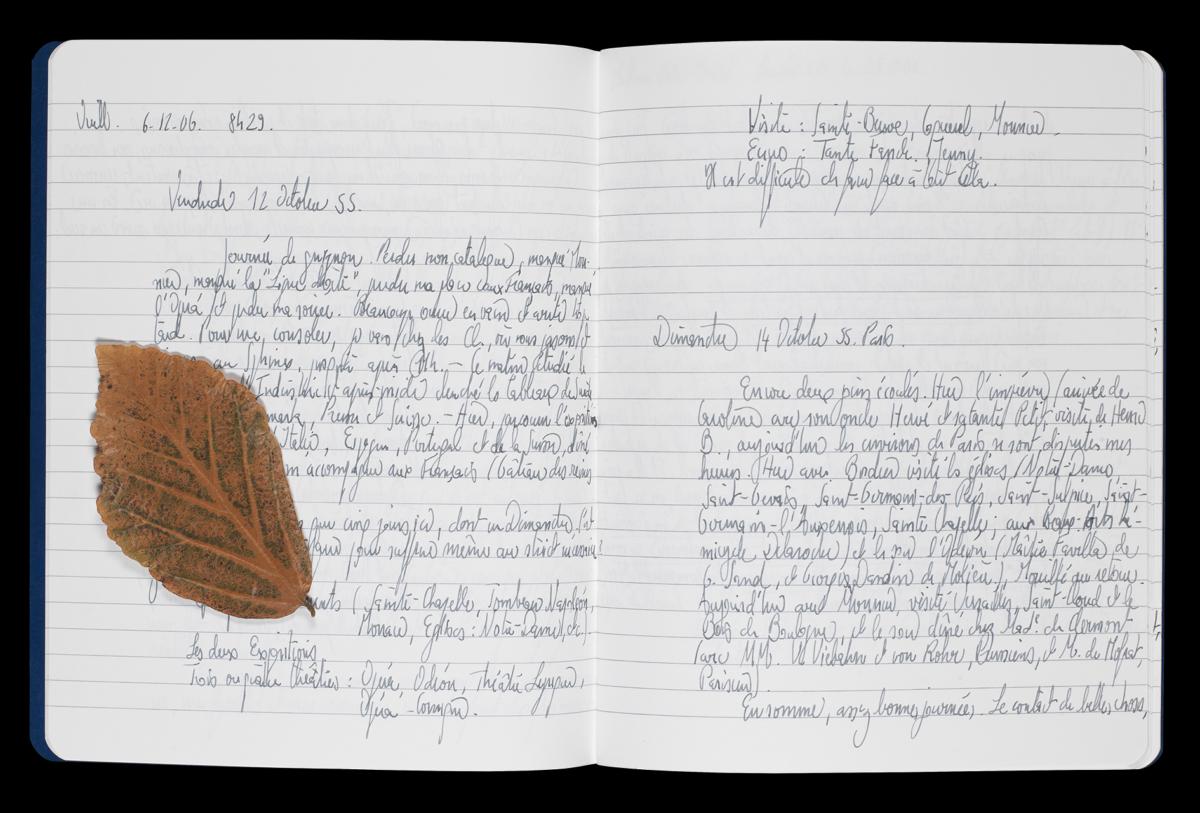 6-12-06. 8h29.
Vendredi 12 Octobre 55.
Journée de guignon. Perdu mon catalogue, manqué Mou-
nier, manqué la "Ligne droite", perdu ma place aux Français, manqué
l'Opéra et perdu ma soirée. Beaucoup couru en vain et arrivé trop
tard. Pour me consoler, je vais chez les Cl., où nous jasons et
au Sphinx, jusqu'à après . — Ce matin étudié
Industriel et après-midi le tableau de
Prusse et Suisse. — Hier, parcouru l'exposition
Italie, Espagne, Portugal et de la Suisse, dîné
accompagné aux Français (Gâteau des reines
que cinq jours ici, dont un Dimanche,
pour suffire même au strict nécessaire?
(Sainte-Chapelle, Tombeau Napoléon,
Monceau, Eglises: Notre-Dame, etc.).
Les deux Expositions
Trois ou quatre théâtres : Opéra, Odéon, Théâtre Lyrique,
Opéra-Comique.
Visite : Sainte-Beuve, Mounier.
Tante Jenny.
Il est difficile de faire face à tout cela.
Dimanche 14 Octobre 55. Paris.
Encore deux jours écoulés. Hier l'imprévu (arrivée de
Caroline avec son oncle Hervé et sa tante Petit, visite de Henri
B., aujourd'hui les environs de Paris se sont disputés mes
heures. Hier avec visité les églises (Notre-Dame,
Saint-Gervais, Saint-Germain-des-Prés, Saint-Sulpice, Saint-
Germain-l'Auxerrois, Sainte Chapelle; aux Beaux-Arts hé-
micycle Delaroche) et le soir l'Odéon (Maître Favilla, de
G. Sand, et Georges Dandin de Molière). Mouillé au retour.
Aujourd'hui avec Mounier visité Versailles, Saint-Cloud et le
Bois de Boulogne, et le soir dîné chez Made. de Clermont
(avec MM. Viebahn et von Rohr, Prussiens, et M. de
Parisien).
En somme, assez bonnes journées. Le contact de belles choses,